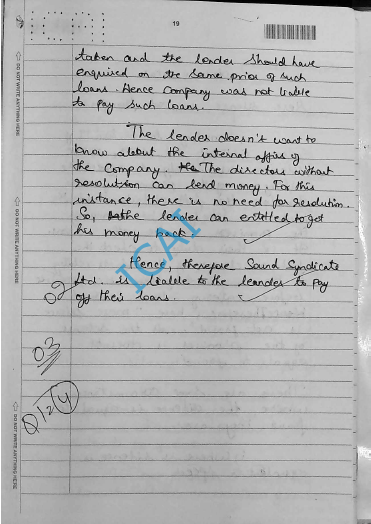 19
taken and the lender should have
enquired on the same prior of such
loans. Hence Company was not liable
to pay such loans.
The lender doesn't want to
know about the internal affairs of
the Company. The directors without
resolution can lend money. For this
instance, there is no need for resolution.
So, the lender can entitled to get
his money back.
Hence, therefore Sound Syndicate
Ltd. is liable to the leander to pay
off their loans.
02
03
Q12 4
ICAI
DO NOT WRITE ANYTHING HERE
DO NOT WRITE ANYTHING HERE
DO NOT WRITE ANYTHING HERE